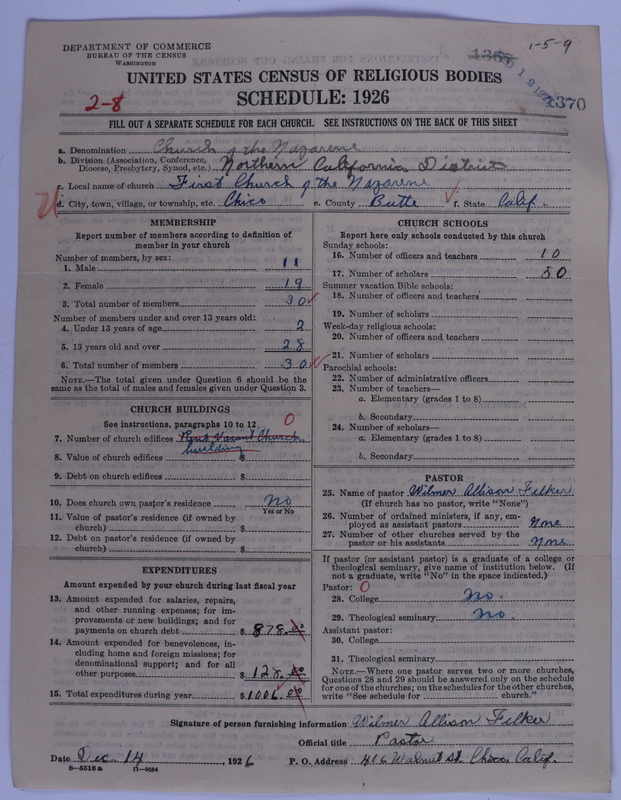 DEPARTMENT OF COMMERCE
BUREAU OF THE CENSUS
WASHINGTON
1-5-9
1367
1370
UNITED STATES CENSUS OF RELIGIOUS BODIES
SCHEDULE: 1926
2-8
FILL OUT A SEPARATE SCHEDULE FOR EACH CHURCH. SEE INSTRUCTIONS ON THE BACK OF THIS SHEET
a. Denomination Church of the Nazarene
b. Division (Association, Conference, Diocese, Presbytery, Synod, etc.) Northern California District
c. Local name of church First Church of the Nazarene
d. City, town, village, or township, etc. Chico e. County Butte f. State Calif.
MEMBERSHIP
Report number of members according to definition of
member in your church
Number of members, by sex:
1. Male 11
2. Female 19
3. Total number of members 30
Number of members under and over 13 years old:
4. Under 13 years of age 2
5. 13 years old and over 28
6. Total number of members 30
NOTE.—The total given under Question 6 should be
same as the total of males and females given under Question 3.
CHURCH BUILDINGS
See instructions, paragraphs 10 to 12 0
7. Number of church edifices Rent Vacant Church
building
8. Value of church edifices $
9. Debt on church edifices $
10. Does church own pastor's residence No
Yes or No
11. Value of pastor's residence (if owned by
church) $
12. Debt on pastor's residence (if owned by
church) $
EXPENDITURES
Amount expended by your church during last fiscal year
13. Amount expended for salaries, repairs,
and other running expenses; for im-
provements or new buildings; and for
payments on church debt $ 878.00
14. Amount expended for benevolences, in-
cluding home and foreign missions; for
denominational support; and for all
other purposes $ 128.00
15. Total expenditures during year $ 1006.00
CHURCH SCHOOLS
Report here only schools conducted by this church
Sunday schools:
16. Number of officers and teachers 10
17. Number of scholars 80
Summer vacation Bible schools:
18. Number of officers and teachers
19. Number of scholars
Week-day religious schools:
20. Number of officers and teachers
21. Number of scholars
Parochial schools:
22. Number of administrative officers
23. Number of teachers—
a. Elementary (grades 1 to 8)
b. Secondary
24. Number of scholars—
a. Elementary (grades 1 to 8)
b. Secondary
PASTOR
25. Name of pastor Wilmer Allison Filker
(If church has no pastor, write "None")
26. Number of ordained ministers, if any, em-
ployed as assistant pastors None
27. Number of other churches served by the
pastor or his assistants None
If pastor (or assistant pastor) is a graduate of a college or
theological seminary, give name of institution below. (If
not a graduate, write "No" in the space indicated.)
Pastor: 0
28. College No.
29. Theological seminary No.
Assistant pastor:
30. College
31. Theological seminary
NOTE.—Where one pastor serves two or more churches,
Questions 28 and 29 should be answered only on the schedule
for one of the churches; on the schedules for the other churches,
write "See schedule for church."
Signature of person furnishing information Wilmer Allison Filker
Official title Pastor
Date Dec. 14, 1926 P. O. Address 416 Walnut St. Chico Calif.
8—5518a 11—9024